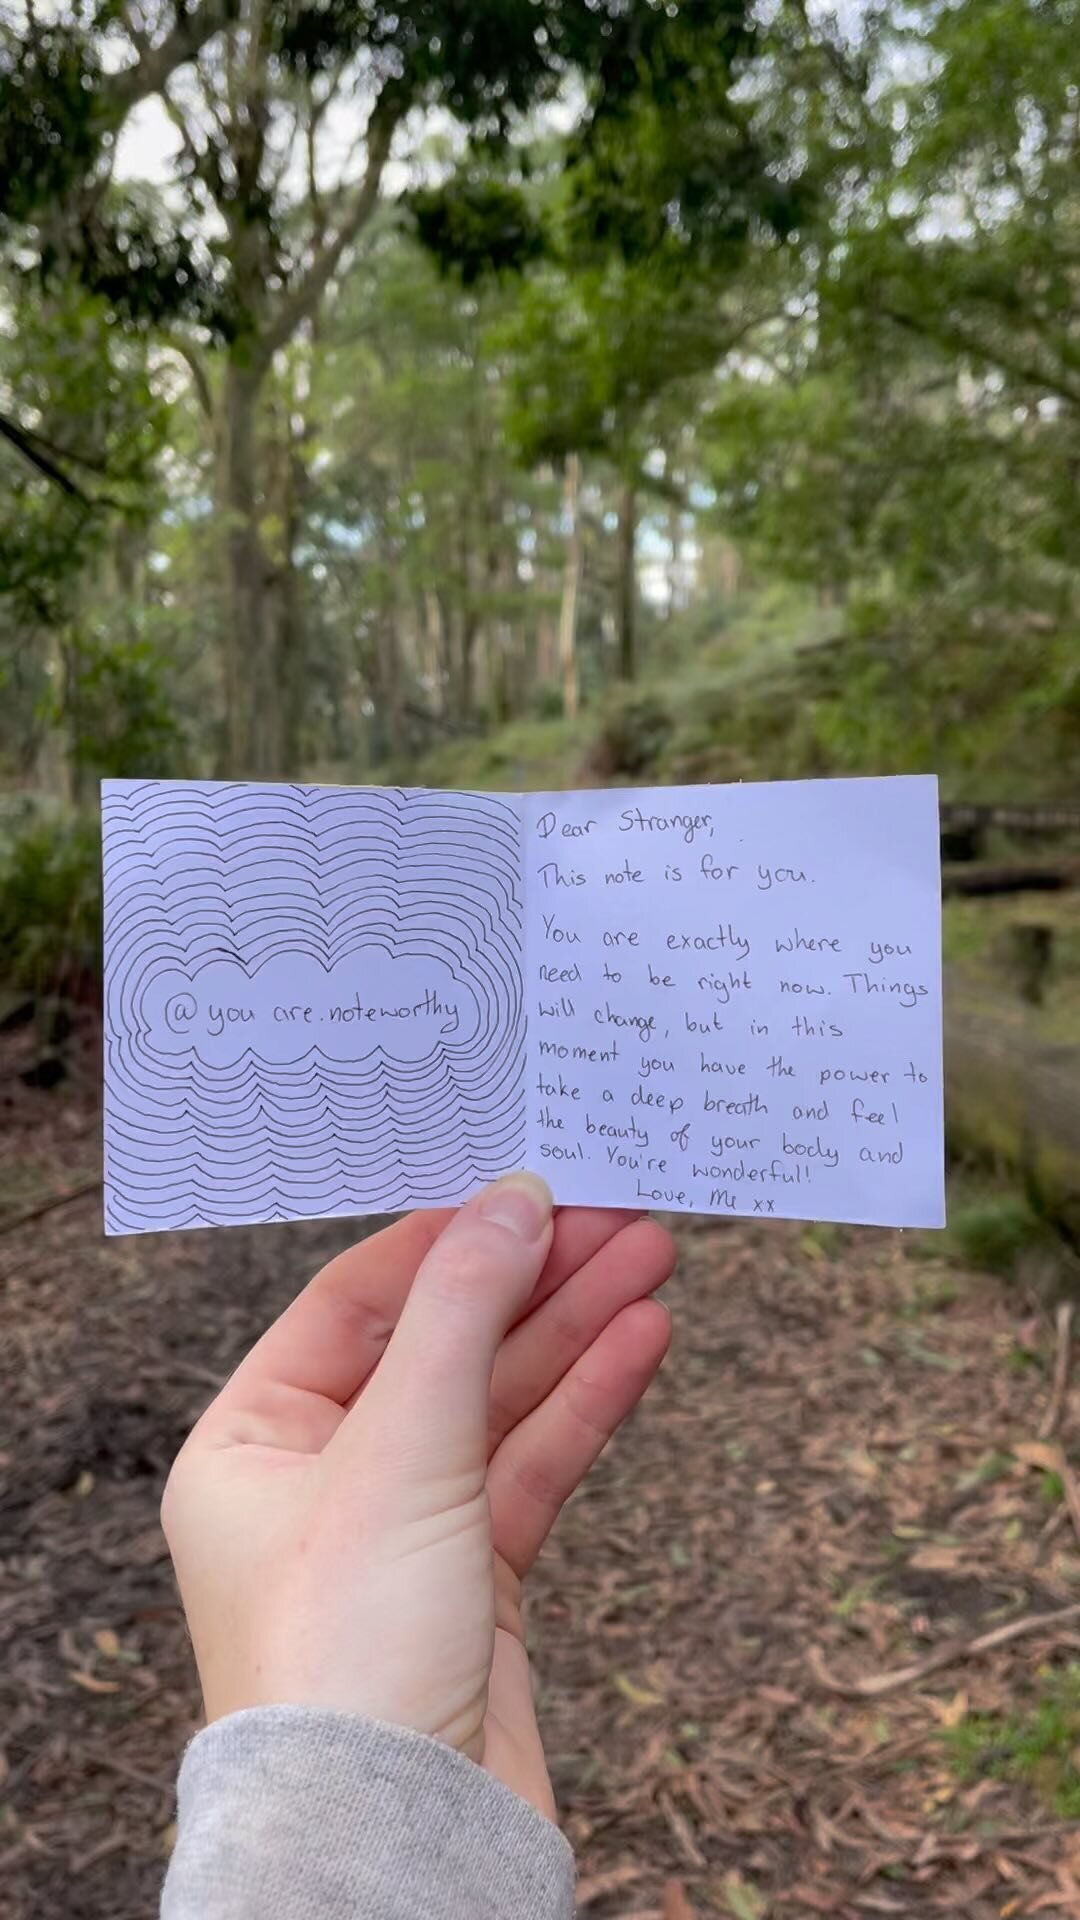 @you are.noteworthy
Dear Stranger,
This note is for you.
You are exactly where you
need to be right now. Things
will change, but in this
moment you have the power to
take a deep breath and feel
the beauty of your body and
soul. You're wonderful!
Love, Me xx